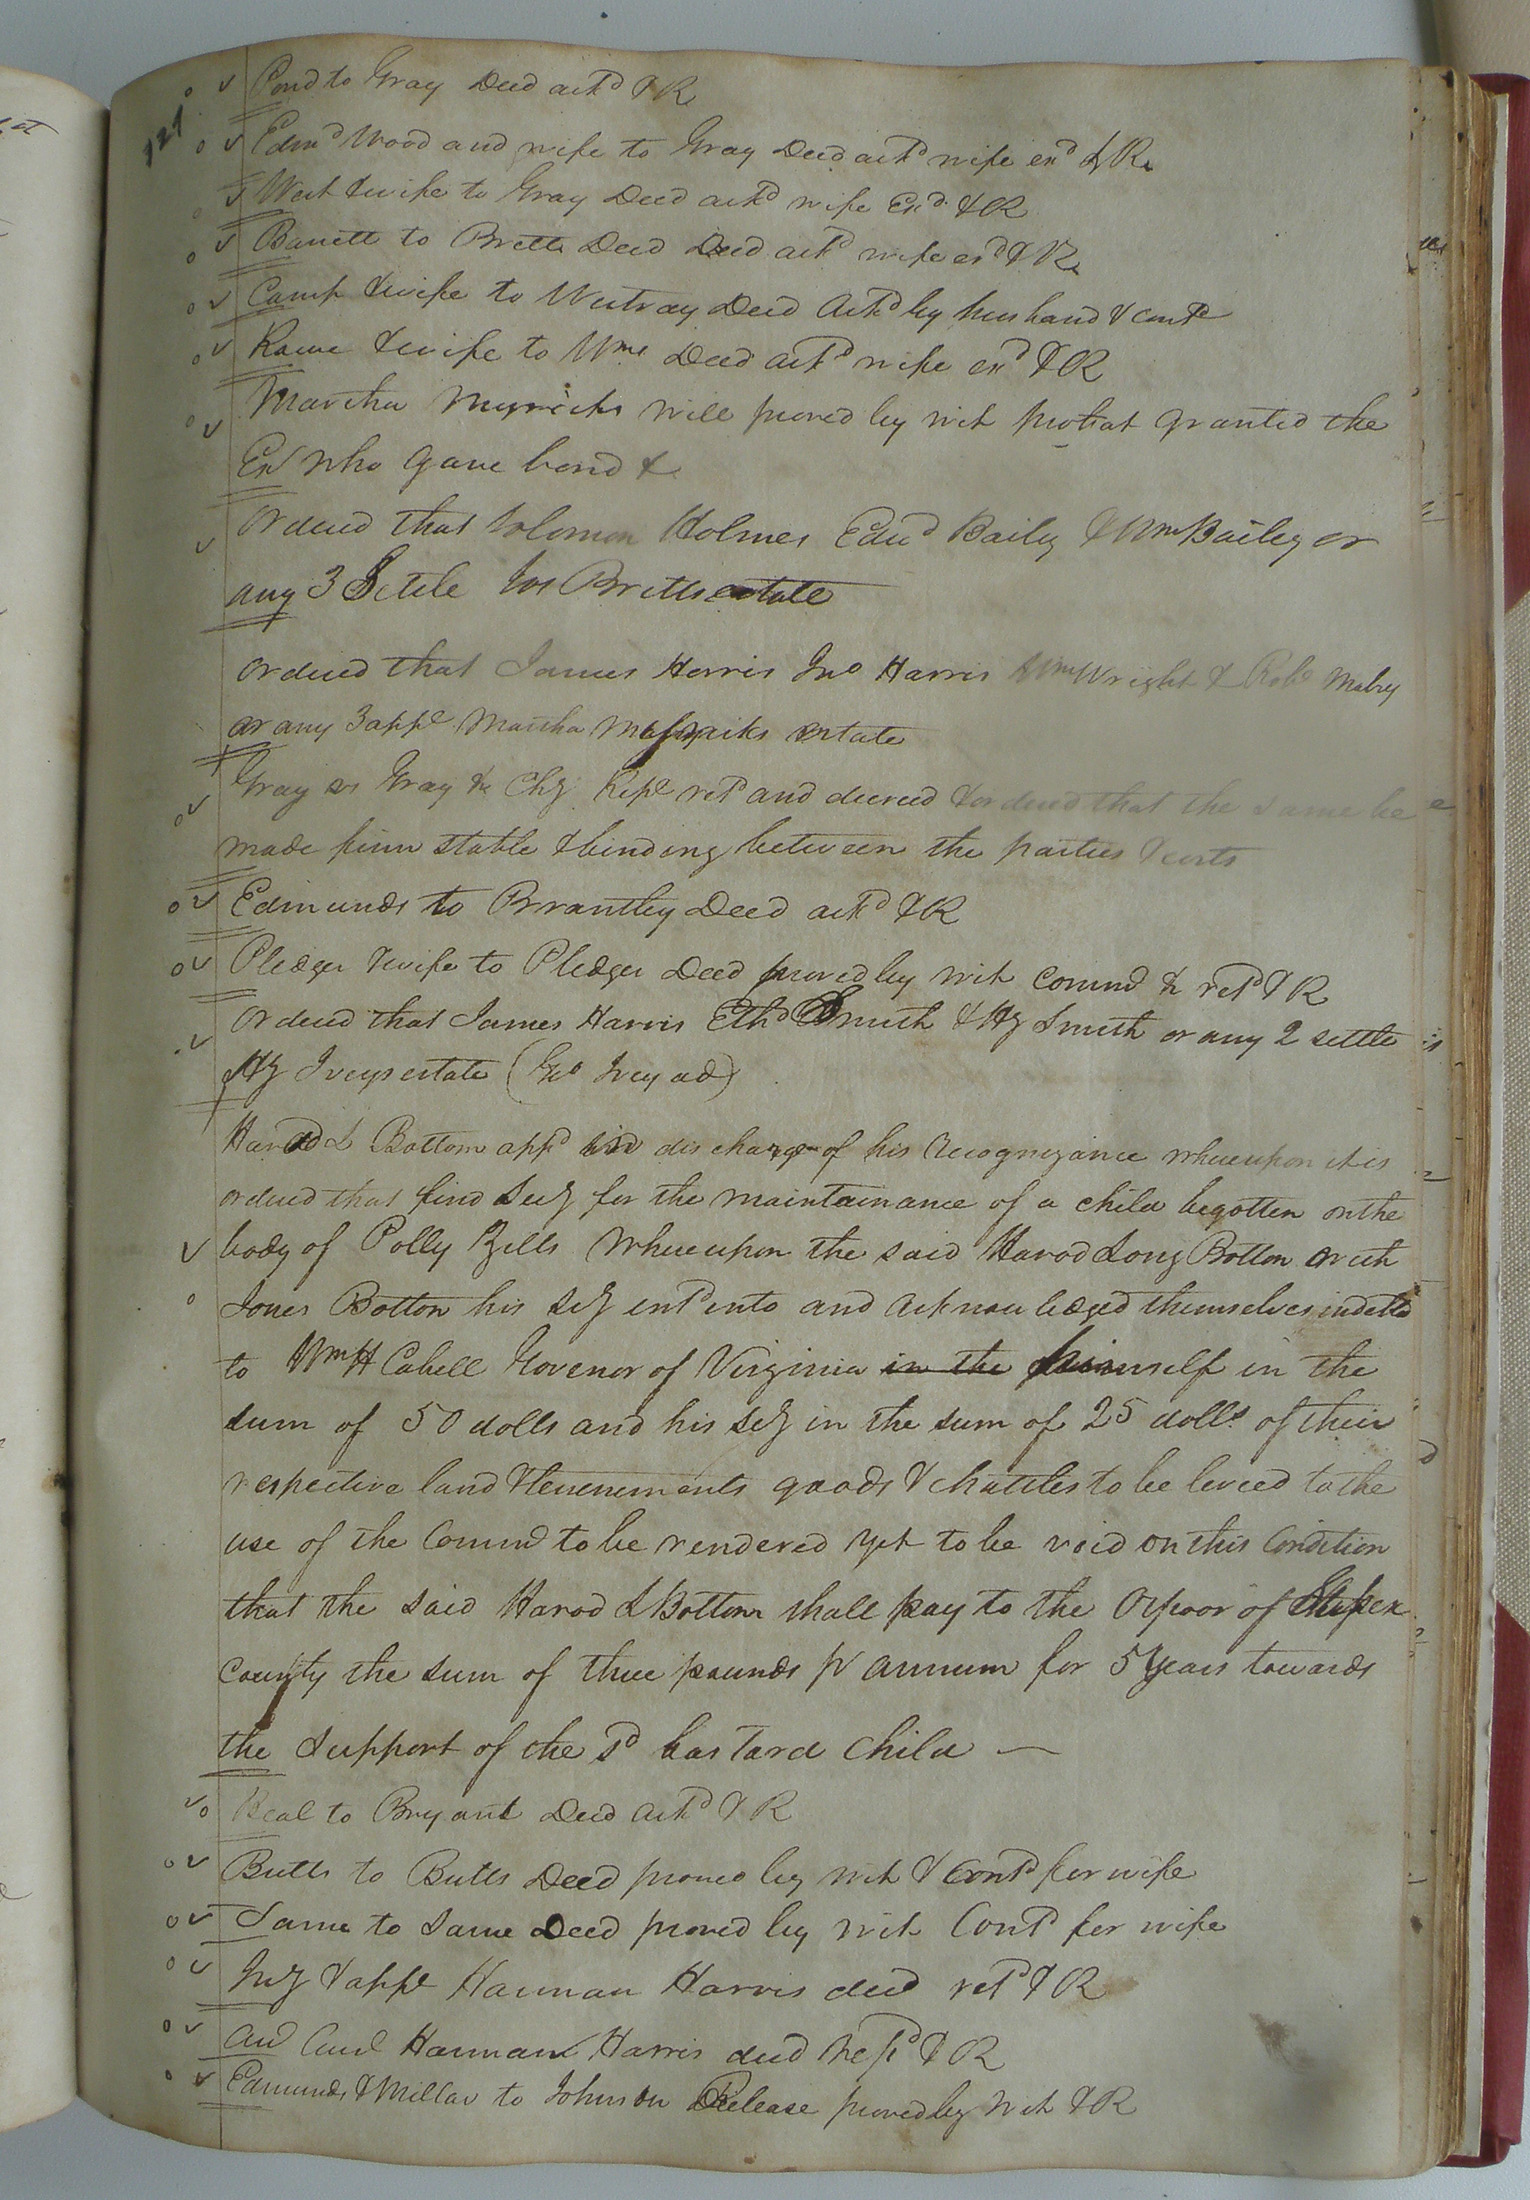 121
Pond to Gray Deed ack^d & R
Edm^d Wood and wife to Gray Deed ack^d wife ex^d & R
West & wife to Gray Deed ack^d wife Ex^d & R
Barrett to Britt Deed Deed ack^d wife ex^d & R
Camp & wife to Westray Deed Ack^d by husband & cont^d
& wife to W^ms Deed ack^d wife ex^d & R
Martha Myricks will proved by wit probat granted the
Ex^r who gave bond &
Ordered that Solomon Holmes Edw^d Baily & Wm Bailey or
any 3 Settle Jos Britts estate
Ordered that James Harris Jn^o Harris Wm Wright & Rob^t Mabry
or any 3 app^e Martha estate
Gray vs Gray &c Chy Rep^t ret^d and decreed & ordered that the same be
made firm stable & binding between the parties &
Edmunds to Brantley Deed ack^d & R
Pledger & wife to Pledger Deed proved by wit Comm^n & ret^d & R
Ordered that James Harris Eth^d Smith & Hy Smith or any 2 settle
Hy Iveys estate (Geo Ivey ad)
Harod L Bottom app^d in discharge of his recognizance whereupon it is
ordered that find Secy for the maintainance of a child begotten on the
body of Polly Zells Whereupon the said Harod Long Botton with
Jones Botton his Scy ent^d into and acknowledged themselves indetted
to Wm H Cabell Govenor of Virginia in the himself in the
sum of 50 dolls and his scy in the sum of 25 dolls of their
respective land & tenements goods & chattles to be levied to the
use of the Comm^n to be rendered yet to be void on this Condition
that the said Harod L Bottom shall pay to the Ospoor of Sussex
County the sum of three pounds pr annum for 5 years towards
the Support of the s^d bastard child —
Beal to Bryant Deed ack^d & R
Butts to Butts Deed proved by wit & Cont^d for wife
Same to Same Deed proved by wit Cont^d for wife
Invy & app^t Hannan Harris decd ret^d & R
Hannan Harris decd ret^d & R
Edmunds & Millar to Johnson Release proved by wit & R